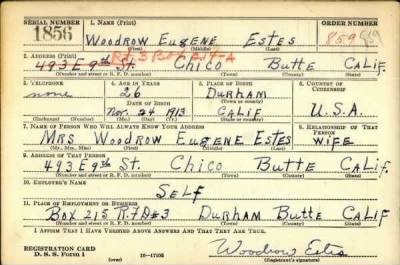 SERIAL NUMBER 1. NAME (Print) ORDER NUMBER
1856 Woodrow Eugene Estes 859
(First) (Middle) (Last)
2. ADDRESS (Print)
493 E 9th St. Chico Butte Calif.
(Number and street or R. F. D. number) (Town) (County) (State)
3. TELEPHONE 4. AGE IN YEARS 5. PLACE OF BIRTH 6. COUNTRY OF CITIZENSHIP
none 26 Durham
(Town or county)
DATE OF BIRTH
Nov. 24 1913 Calif U.S.A.
(Exchange) (Number) (Mo.) (Day) (Yr.) (State or country)
7. NAME OF PERSON WHO WILL ALWAYS KNOW YOUR ADDRESS 8. RELATIONSHIP OF THAT PERSON
Mrs Woodrow Eugene Estes Wife
(Mr., Mrs., Miss) (First) (Middle) (Last)
9. ADDRESS OF THAT PERSON
493 E 9th St. Chico Butte Calif.
(Number and street or R. F. D. number) (Town) (County) (State)
10. EMPLOYER'S NAME
Self
11. PLACE OF EMPLOYMENT OR BUSINESS
Box 215 R.F.D#3 Durham Butte Calif
(Number and street or R. F. D. number) (Town) (County) (State)
I AFFIRM THAT I HAVE VERIFIED ABOVE ANSWERS AND THAT THEY ARE TRUE.
REGISTRATION CARD
D. S. S. FORM 1 (over) 16—17105
Woodrow Estes
(Registrant's signature)